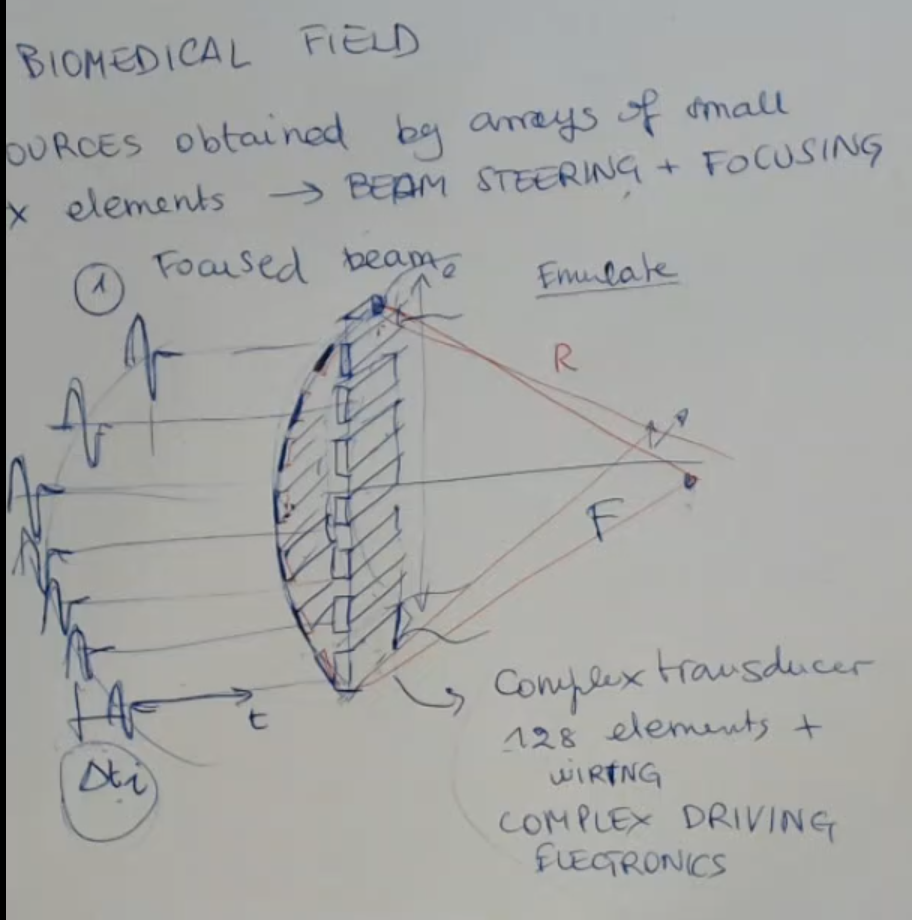 BIOMEDICAL FIELD
OURCES obtained by arrays of small
x elements → BEAM STEERING + FOCUSING
1 Focused beam
Emulate
R
F
t
Δti
Complex transducer
128 elements +
WIRING
COMPLEX DRIVING
ELECTRONICS